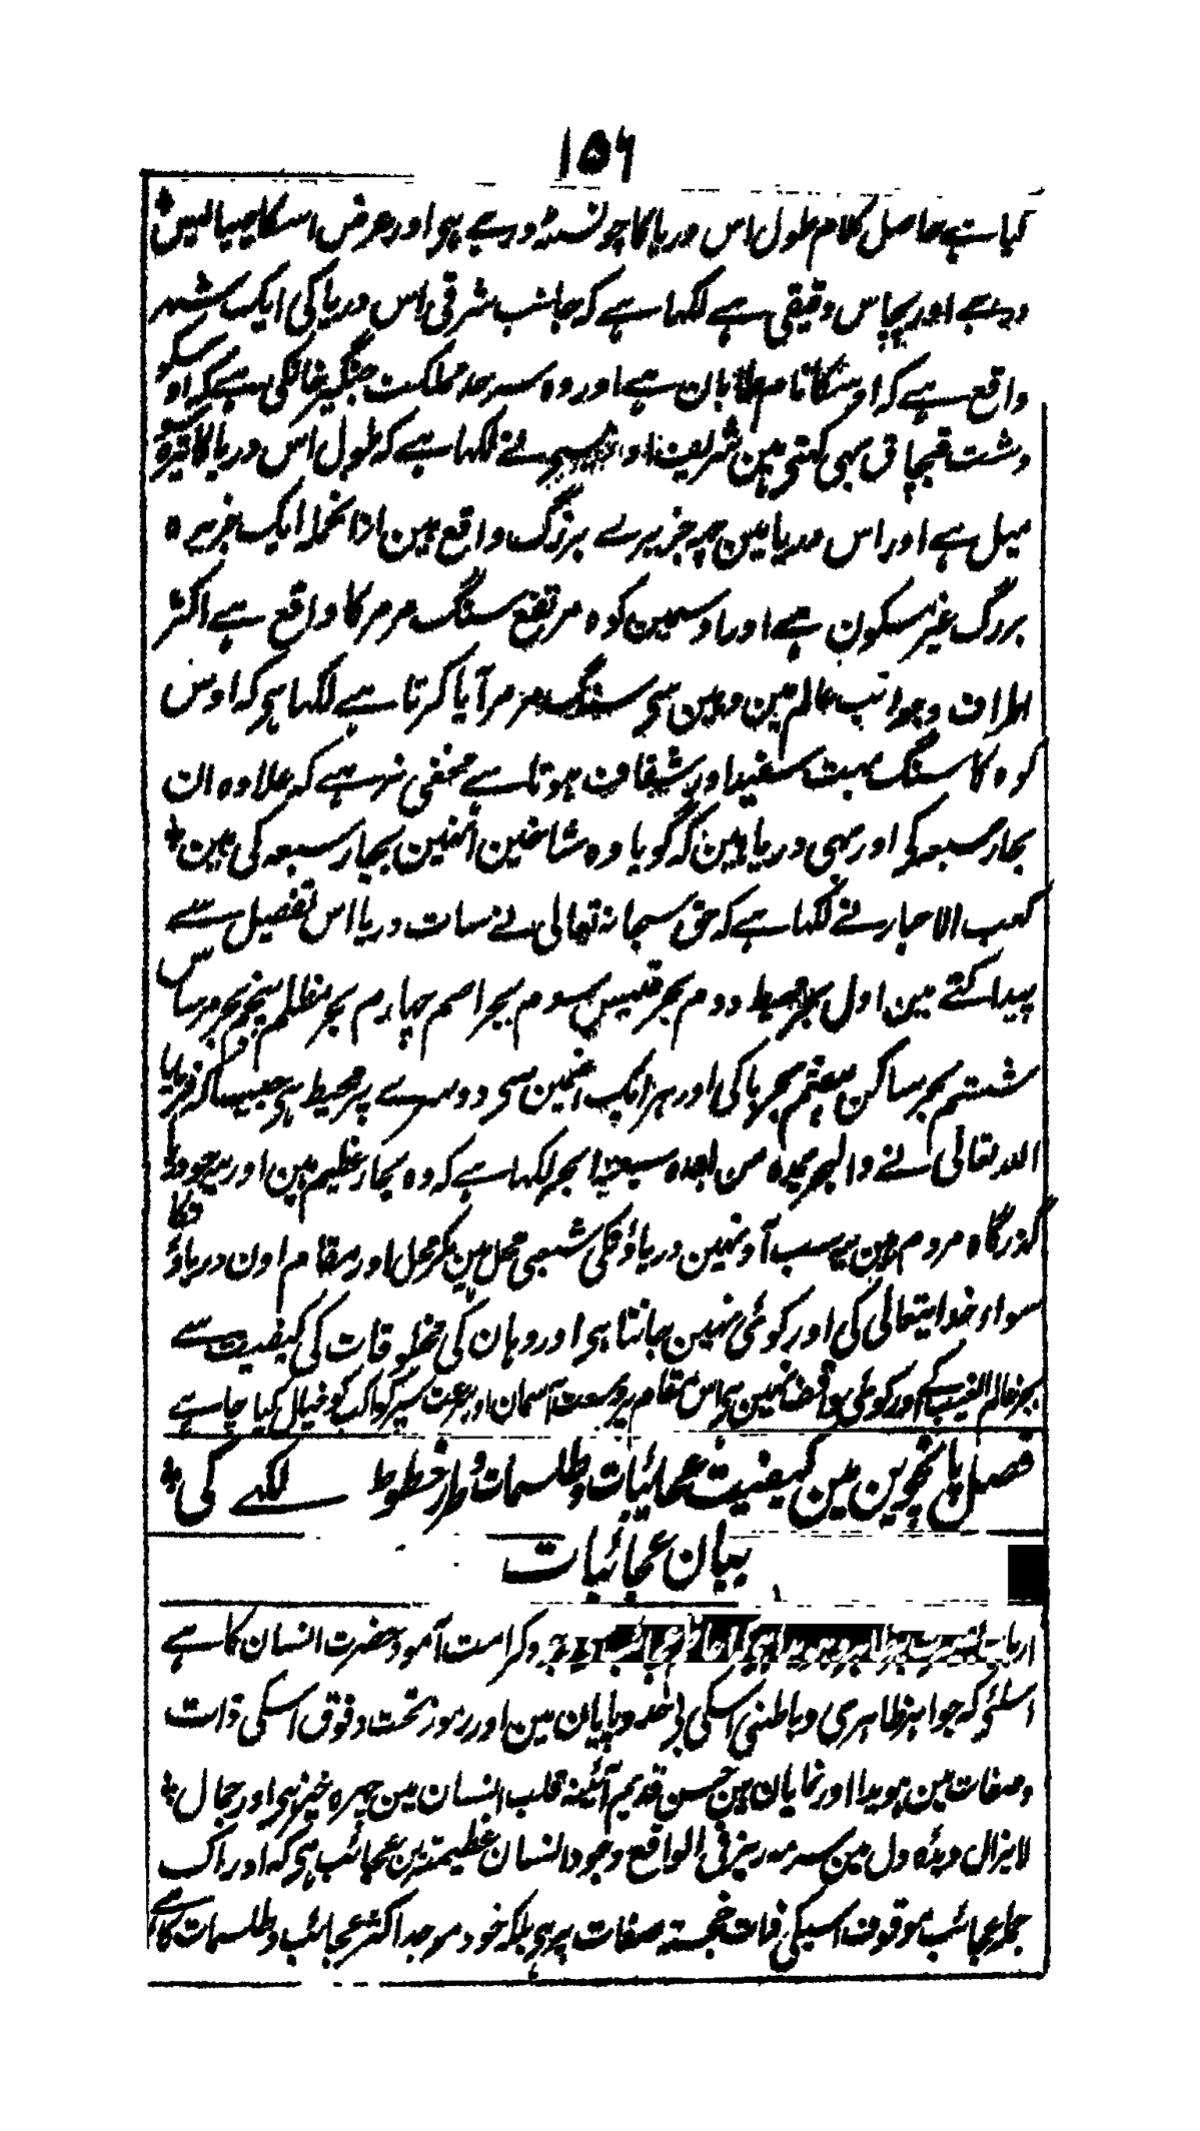 ۱۵۶
کیا ہے حاصل کلام طول اس دریا کا چونسٹہ درجے ہی اور عرض اسکا چہیالیس
درجے اور پچاس دقیقی ہے لکہا ہے کہ جانب شرقی اس دریا کی ایک شہر
واقع ہے کہ اوسکا نام بان ہے اور وہ سرحد مملکت چنگیز خانکی ہے کہ اوسکو
دشت قبچاق بہی کہتی ہین شریف نے لکہا ہے کہ طول اس دریا کا
میل ہے اور اس دریا مین چہ جزیرے بزرگ واقع ہین ازانجملہ ایک جزیرہ
بزرگ غیر مسکون ہے اور اوسمین کوہ مرتفع سنگ مرمر کا واقع ہے اکثر
اطراف و جوانب عالم مین وہین سی سنگ مرمر آیا کرتا ہے لکہا ہی کہ اوس
کوہ کا سنگ بہت سفید اور شفاف ہوتا ہے مخفی نرہے کہ علاوہ ان
بحار سبعہ کے اور بہی دریا ہین کہ گویا وہ شاخین انہین بحار سبعہ کی ہین
کعب الاحبار نے لکہا ہے کہ حق سبحانہ تعالی نے سات دریا اس تفصیل سے
پیدا کئے ہین اول بحر محیط دوم بحر قبیس سوم بحر اصم چہارم بحر مظلم پنجم بحر مرماس
ششم بحر ساکن ہفتم بحر باکی اور ہر ایک انمین سی دوسرے پر محیط ہی جیسا کہ فرمایا
اللہ تعالی نے والبحر یمدہ من بعدہ سبعۃ ابحر لکہا ہے کہ وہ بحار عظیم ہین اور موجود
گذرگاہ مردم ہین یہ سب آو نہین دریاؤ نکی شعبی محل ہین مگر محل اور مقام اون دریاؤ نکا
سواء خدایتعالی کی اور کوئی نہین جانتا ہی اور وہان کی مخلوقات کی کیفیت سے
بجز عالم الغیب کے اور کوئی واقف نہین ہی اس مقام پر وسعت آسمان اور سرعت سیر کواکب کو خیال کیا چاہے
فصل پانچوین مین کیفیت عجائبات و طلسمات و طرز خطوط لکہنے کی
بیان عجائبات
وجہ و کرامت آمود حضرت انسان کا ہے
اسلئے کہ جواہر ظاہری و باطنی اسکی بی حد و پایان ہین اور رموز تحت و فوق اسکی ذات
و صفات مین ہویدا اور نمایان ہین حسن قدیم آئینہ قلب انسان مین چہرہ خیز ہی اور جمال
لایزال دیدہ دل مین سرمہ ریز فی الواقع وجود انسان عظیمترین عجائب ہی کہ ادراک
جملہ عجائب موقوف اسیکی ذات خجستہ صفات پر ہی بلکہ خود موجد اکثر عجائب و طلسمات کا ہے